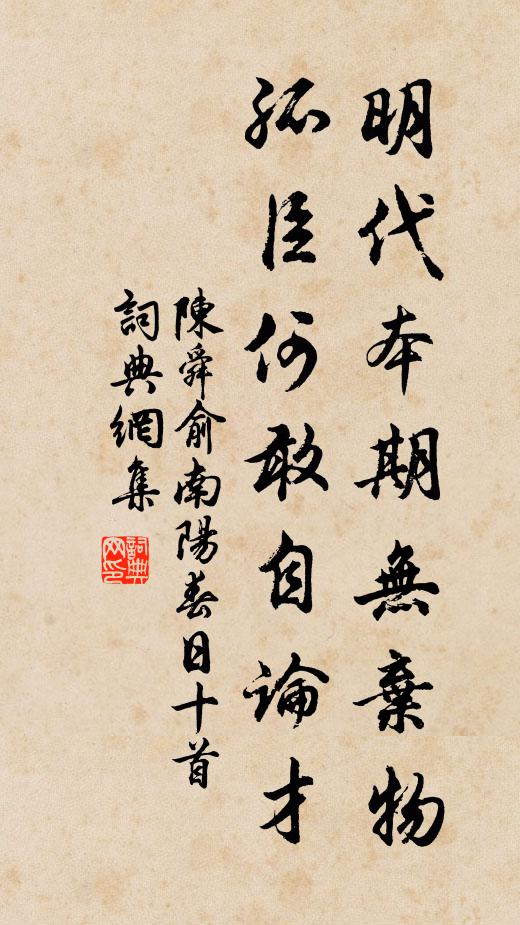 明代本期無棄物
孤臣何敢自論才
陳舜俞南陽春日十首
詞典網集
詞典網印